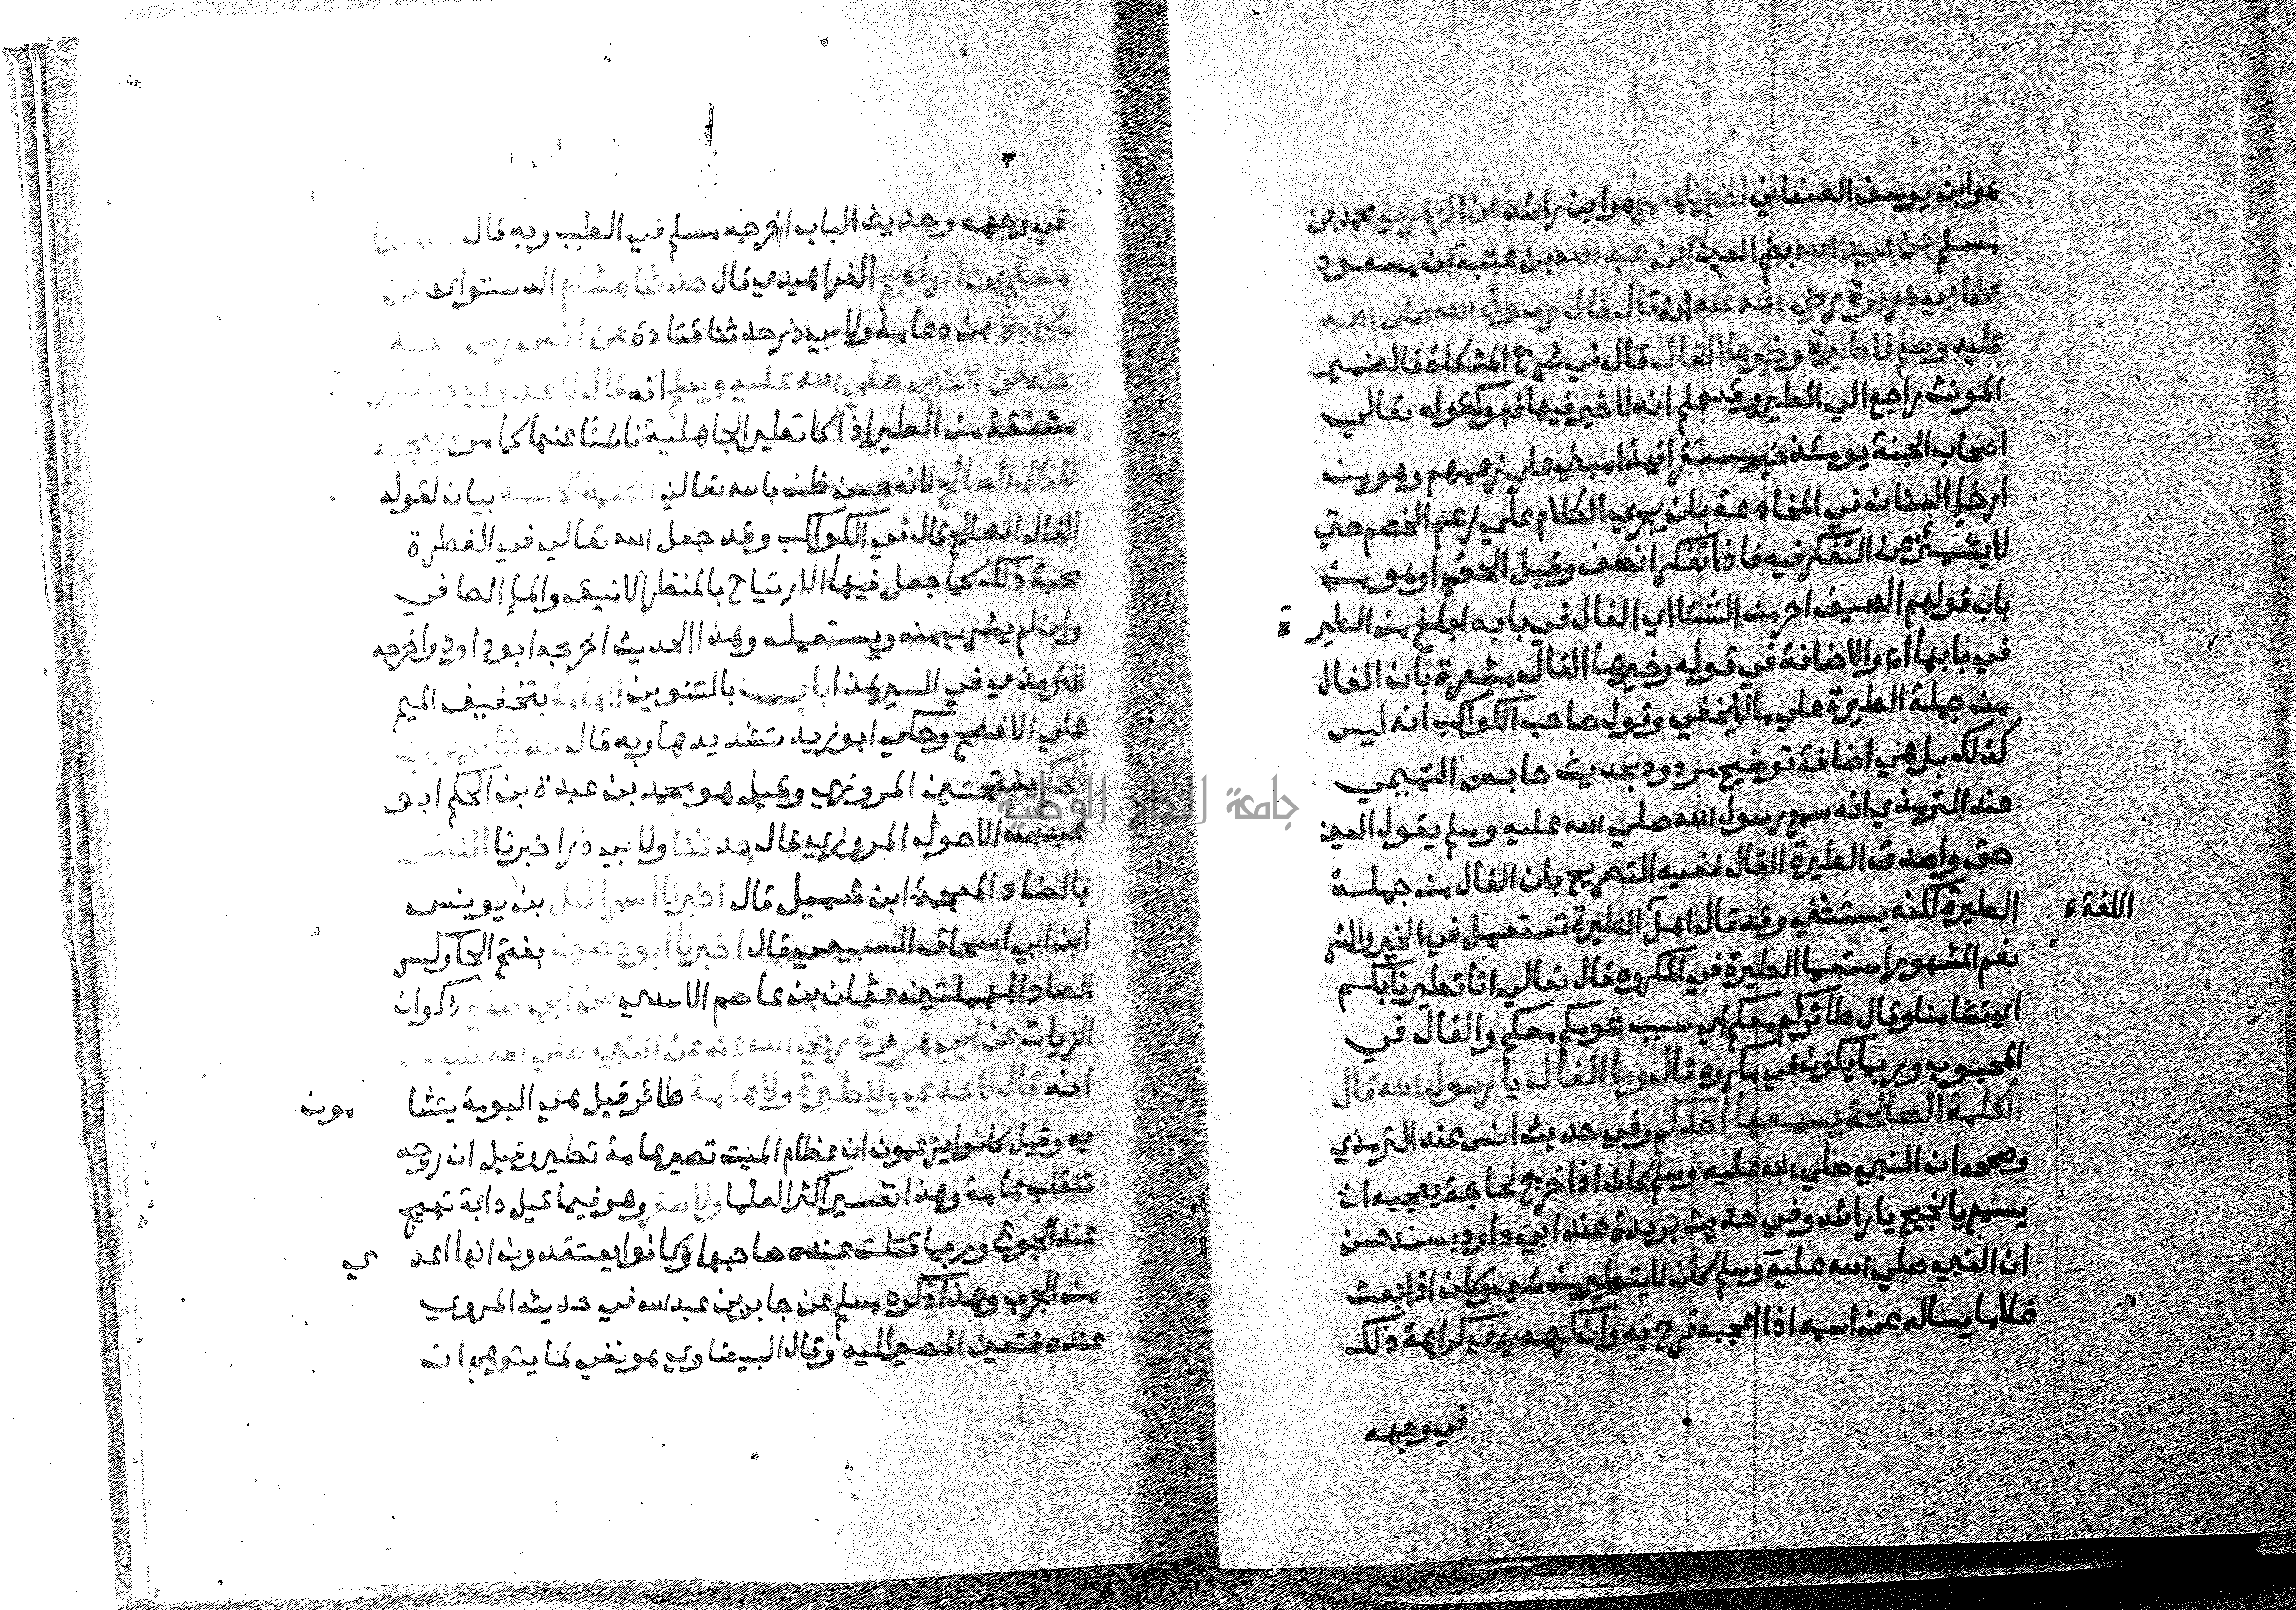 هو ابن يوسف الصنعاني اخبرنا معمر هو ابن راشد عن الزهري محمد بن
مسلم عن عبيد الله بضم العين ابن عبد الله بن عتبة بن مسعود
عن ابي هريرة رضي الله عنه انه قال قال رسول الله صلي الله
عليه وسلم لا طيرة وخيرها الفال قال في شرح المشكاة فالضمير
المونث راجع الي الطيرة وقد علم انه لا خير فيها فهو كقوله تعالي
اصحاب الجنة يومئذ خير مستقرا فهذا مبني علي زعمهم وهو من
ارخا العنان في المخادعة بان يجري الكلام علي زعم الخصم حتي
لا يشمئز عن التفكر فيه فاذا تفكر انصف وقبل الحق او هو من
باب قولهم الصيف احر من الشتا اي الفال في بابه ابلغ من الطيرة
في بابها اه والاضافة في قوله وخيرها الفال مشعرة بان الفال
من جملة الطيرة علي ما لا يخفي وقول صاحب الكواكب انه ليس
كذلك بل هي اضافة توضيح مردود بحديث حابس التميمي
عند الترمذي انه سمع رسول الله صلي الله عليه وسلم يقول العين
حق واصدق الطيرة الفال ففيه التصريح بان الفال من جملة
الطيرة لكنه يستثني وقد قال اهل الطيرة تستعمل في الخير والشر
اللغة ه
نعم المشهور استعمها الطيرة في المكروه قال تعالي انا تطيرنا بكم
اي تشامنا وقال طائركم معكم اي سبب شومكم معكم والفال في
المحبوب وربما يكون في مكروه قال وما الفال يا رسول الله قال
الكلمة الصالحة يسمعها احدكم وفي حديث انس عند الترمذي
وصححه ان النبي صلي الله عليه وسلم كان اذا خرج لحاجة يعجبه ان
يسمع يا نجيح يا راشد وفي حديث بريدة عند ابي داود بسند حسن
ان النبي صلي الله عليه وسلم كان لا يتطير من شي وكان اذا بعث
غلاما يساله عن اسمه اذا اعجبه فرح به وان كرهه روي كراهة ذلك
في وجهه
في وجهه وحديث الباب اخرجه مسلم في الطب وبه قال
مسلم بن ابراهيم الفراهيدي قال حدثنا هشام الدستواي عن
قتادة بن دعامة ولابي ذر حدثنا قتادة عن انس رضي الله
عنه عن النبي صلي الله عليه وسلم انه قال لا عدوي ولا طيرة
مشتقة من الطير اذ اكا تطير الجاهلية ناشئا عنها كما مر ويعجبه
الفال الصالح لانه حسن ظن بالله تعالي الكلمة الحسنة بيان لقوله
الفال الصالح قال في الكواكب وقد جعل الله تعالي في الفطرة
محبة ذلك كما جعل فيها الارتياح بالمنظر الانيق والما الصافي
وان لم يشرب منه ويستعمله وهذا الحديث اخرجه ابو داود واخرجه
الترمذي في السير هذا باب بالتنوين لا هامة بتخفيف الميم
علي الافصح وحكي ابو زيد تشديدها وبه قال حدثنا محمد بن
الحكم بفتحتين المروزي وقيل هو محمد بن عبدة بن الحكم ابو
عبد الله الاحول المروزي قال حدثنا ولابي ذر اخبرنا النضر
بالضاد المعجمة ابن شميل قال اخبرنا اسرائيل بن يونس
ابن ابي اسحاق السبيعي قال اخبرنا ابو حصين بفتح الحا وكسر
الصاد المهملتين عثمان بن عاصم الاسدي عن ابي صالح ذكوان
الزيات عن ابي هريرة رضي الله عنه عن النبي صلي الله عليه و
انه قال لا عدوي ولا طيرة ولا هامة طائر قيل هي البومة يتشا مون
به وقيل كانوا يزعمون ان عظام الميت تصير هامة تطير وقيل ان روحه
تنقلب هامة وهذا تفسير اكثر العلما ولا صفر وهو فيما قيل دابة تهيج
عند الجوع وربما قتلت عنده صاحبها وكانوا يعتقدون انها اعد ي
من الجرب وهذا ذكره مسلم عن جابر بن عبد الله في حديثه المروي
عنده فتعين المصير اليه وقال البيضاوي هو نفي لما يتوهم ان
جامعة النجاح الوطنية